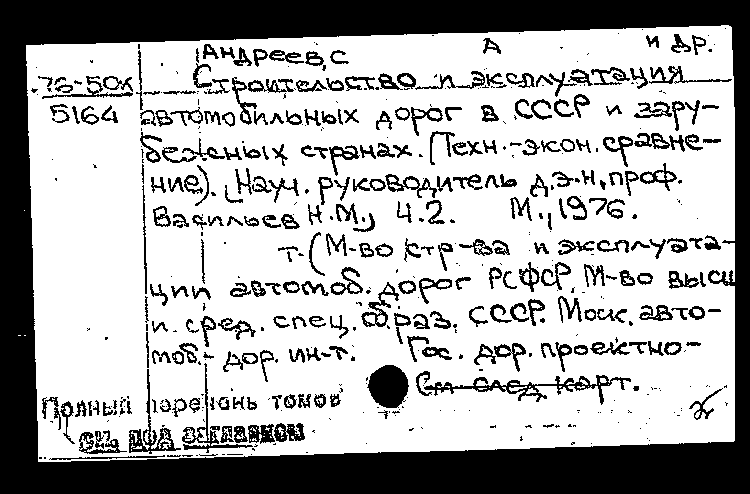 Андреев, С А и др.
76-50к Строительство и эксплуатация
5164 автомобильных дорог в СССР и зару-
бежных странах. (Техн.-экон. сравне-
ние). Науч. руководитель д.э.н., проф.
Васильев Н.М., Ч.2. М., 1976.
т. (М-во стр-ва и эксплуата-
ции автомоб. дорог РСФСР, М-во высш
и сред. спец. образ. СССР. Моск. авто-
моб.-дор. ин-т. Гос. дор. проектно-
См след карт.
Полный перечень томов
см. под заглавием